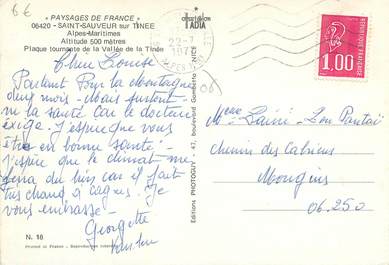 6€
« PAYSAGES DE FRANCE »
06420 - SAINT-SAUVEUR sur TINEE
Alpes-Maritimes
Altitude 500 mètres
Plaque tournante de la Vallée de la Tinée
Chère Louise
Partant Pour la montagne
deux mois - Mais surtout
ma santé car le docteur
exige. J'espère que vous
êtes en bonne santé.
J'espère que le climat me
fera du bien car il fait
très chaud à cagnes. Je
vous embrasse -
Georgette
N. 18
Printed in France - Reproduction interdite
Editions PHOTOGUY - 47, boulevard Gambetta - NICE
IADIA
22-7
06
REPUBLIQUE FRANCAISE
POSTES
1,00
Mme Lainé - Lou Pantaï
chemin des Cabrières
Mougins
06.250